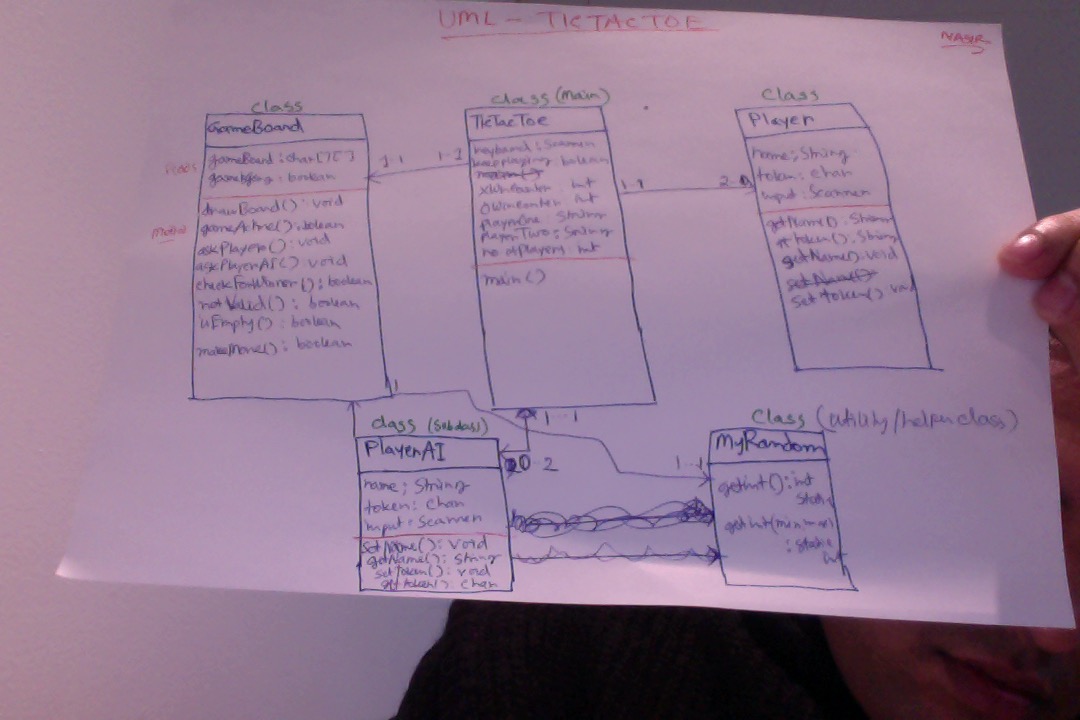 UML - TICTACTOE
NASR
class
GameBoard
gameBoard: char[][]
: boolean
drawBoard(): void
gameActive(): bolean
askPlayer(): void
askPlayerAI() void
checkForWinner(): boolean
notValid(): boolean
isEmpty(): boolean
makeMove(): boolean
1-1
1-1
class (Main)
TicTacToe
keyboard: Scanner
keepplaying: bolean
xWinCounter: int
OWinCounter: int
playerOne: String
playerTwo: String
no of Players: int
main()
1-1
2-0
Class
Player
name: String
token: char
input: Scanner
getName(): String
getToken(): String
getName(): void
setName()
setToken() void
1
1--1
0--2
class (Subclass)
PlayerAI
name: String
token: char
input: Scanner
setName(): void
getName(): String
setToken(): void
getToken(): char
1--1
Class (utility/helper class)
MyRandom
getint(): int
static
getint(min max)
: static
int